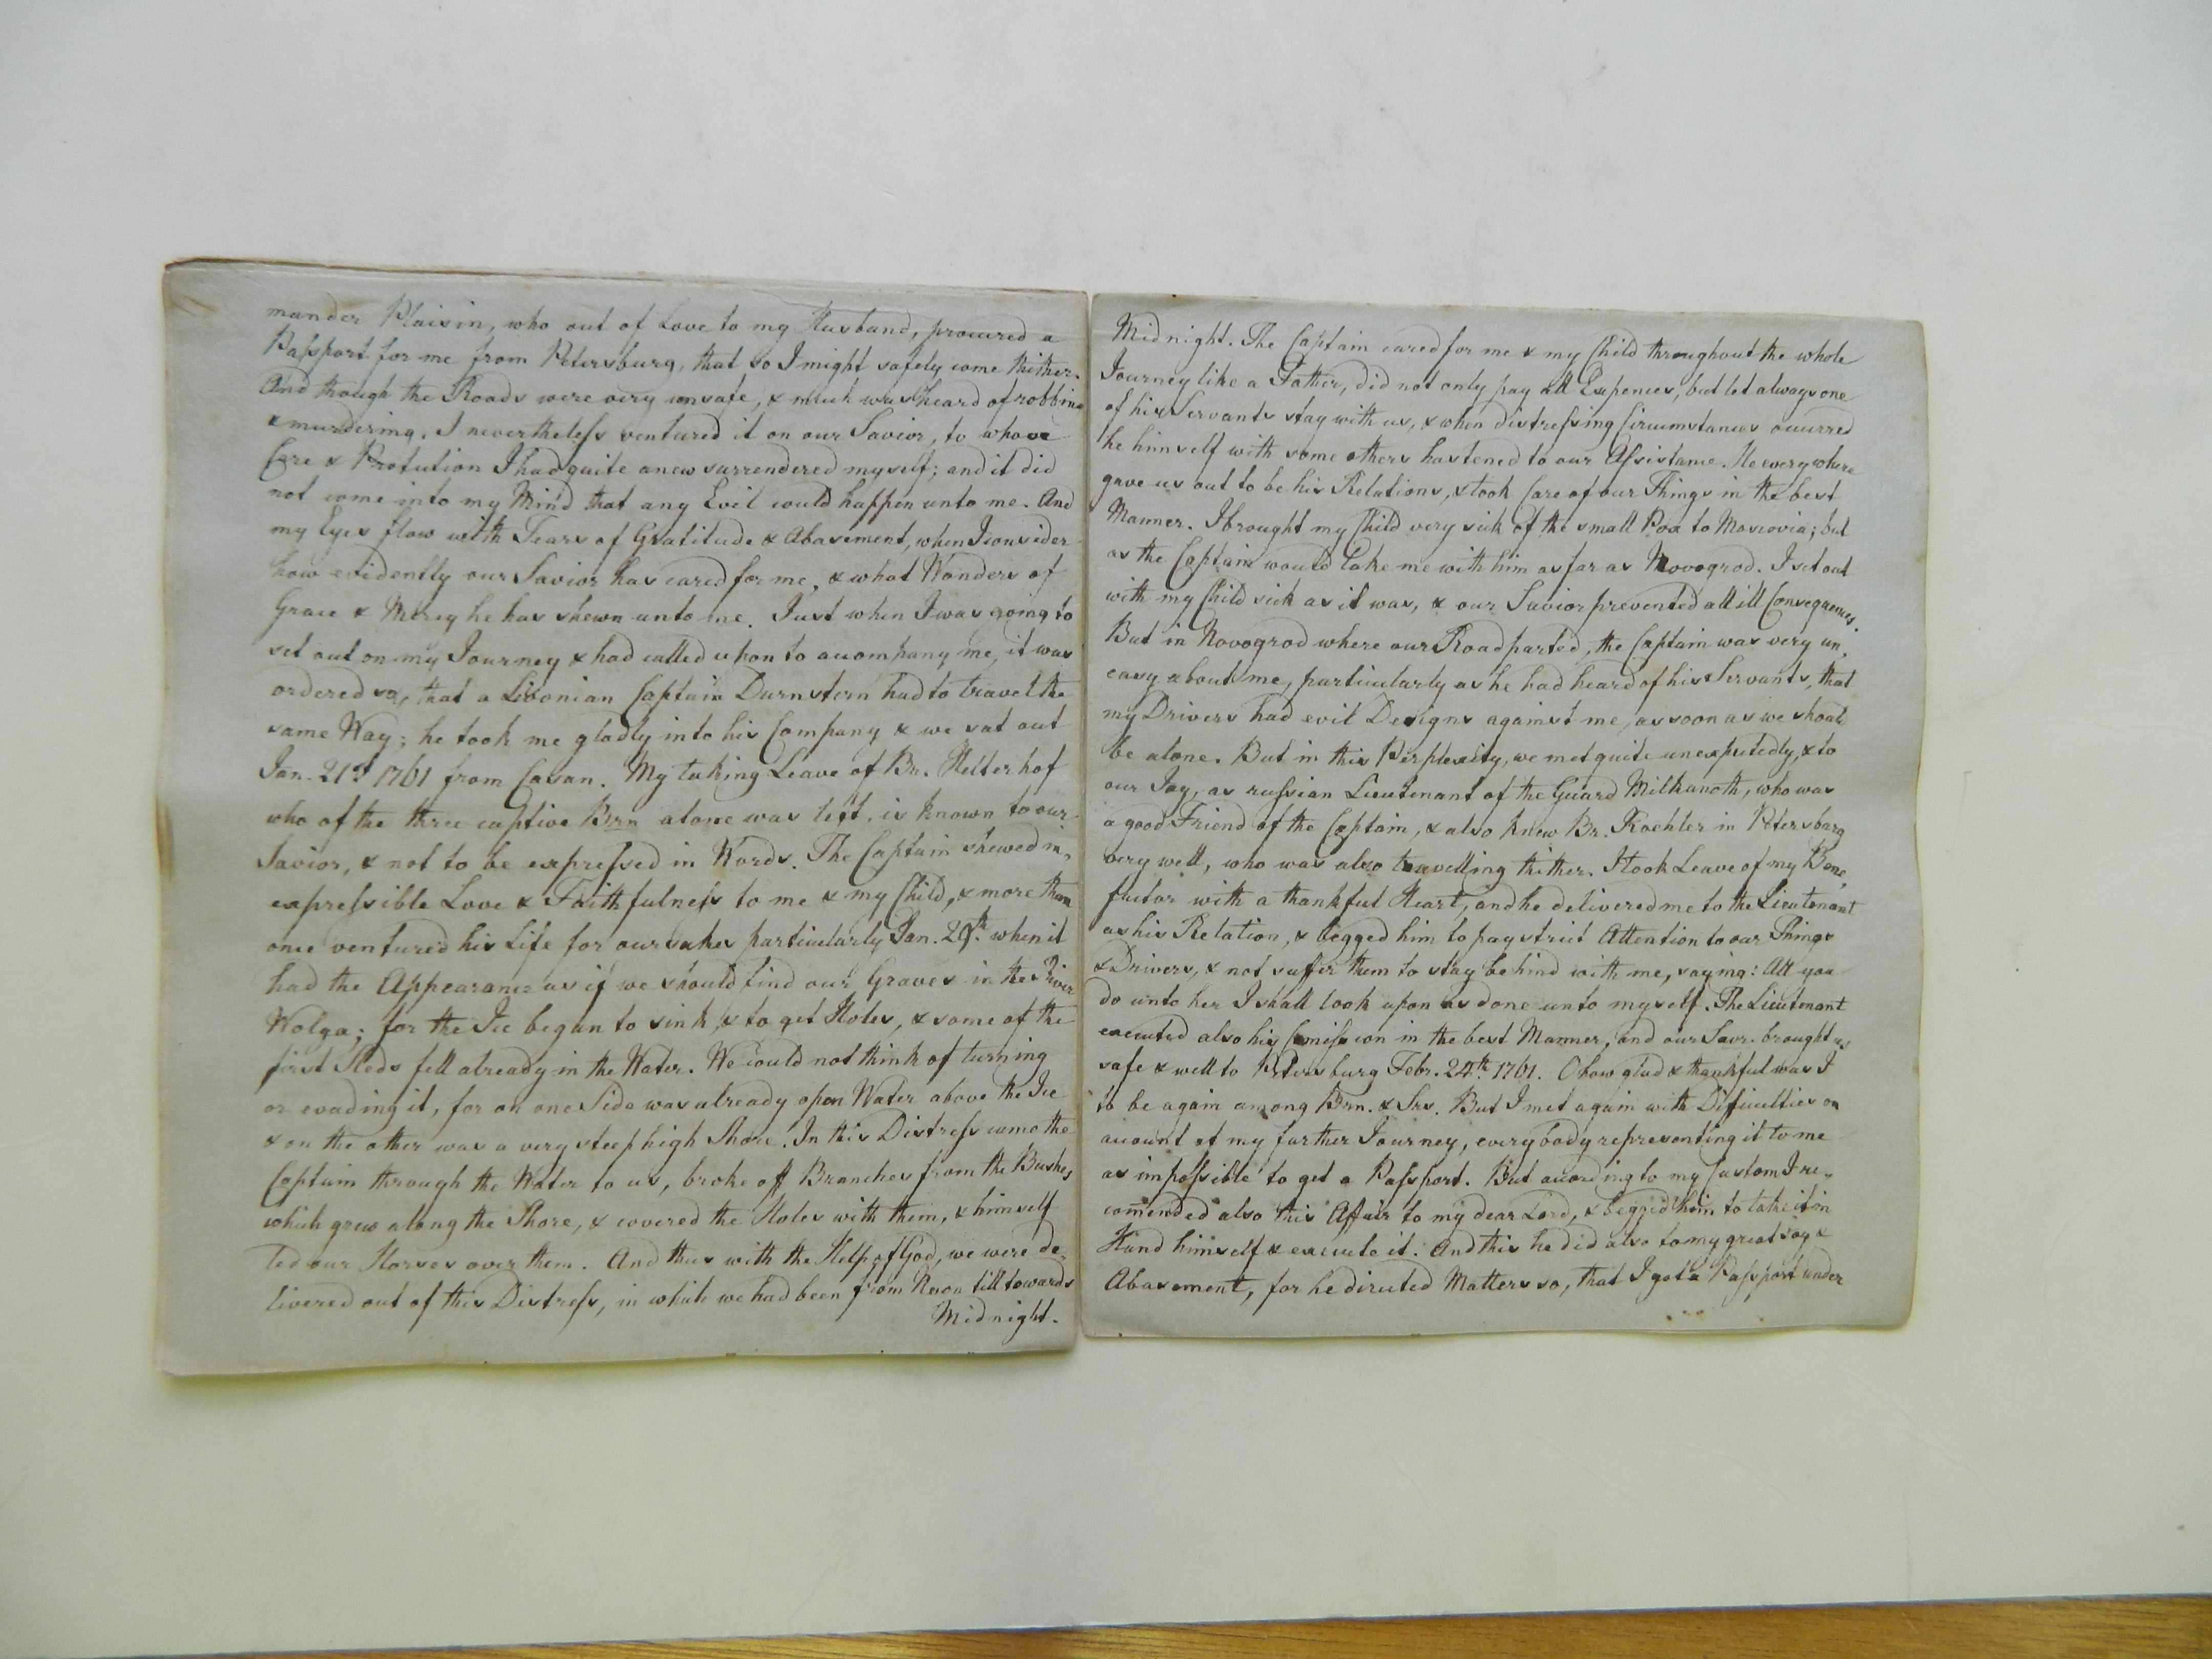 mander Plaisin, who out of Love to my Husband, procured a
Passport for me from Petersburg, that so I might safely come thither.
And though the Roads were very unsafe, & much was heard of robbing
& murdering. I nevertheless ventured it on our Savior, to whose
Care & Protection I had quite anew surrendered myself; and it did
not come into my Mind that any Evil could happen unto me. And
my Eyes flow with Tears of Gratitude & Abasement, when I consider
how evidently our Savior has cared for me, & what Wonders of
Grace & Mercy he has shewn unto me. Just when I was going to
set out on my Journey & had called upon to accompany me, it was
ordered so, that a Livonian Captain Durnstern had to travel the
same Way; he took me gladly into his Company & we sat out
Jan. 21st 1761 from Casan. My taking Leave of Br. Helterhof
who of the three captive Brn alone was left, is known to our
Savior, & not to be expressed in Words. The Captain shewed in-
expressible Love & Faithfulness to me & my Child, & more than
once ventured his Life for our sakes particularly Jan. 29th. when it
had the Appearance as if we should find our Graves in the River
Wolga; for the Ice began to sink, & to get Holes, & some of the
first Sleds fell already in the Water. We could not think of turning
or evading it, for on one Side was already open Water above the Ice
& on the other was a very steep high Shore. In this Distress came the
Captain through the Water to us, broke off Branches from the Bushes
which grew along the Shore, & covered the Holes with them, & himself
led our Horses over them. And thus with the Help of God, we were de-
livered out of this Distress, in which we had been from Noon till towards
Midnight.
Midnight. The Captain cared for me & my Child throughout the whole
Journey like a Father, did not only pay all Expences, but let always one
of his Servants stay with us, & when distressing Circumstances occurred
he himself with some others hastened to our Assistance. He everywhere
gave us out to be his Relations, & took Care of our Things in the best
Manner. I brought my Child very sick of the small Pox to Moscovia; but
as the Captain would take me with him as far as Novogrod. I set out
with my Child sick as it was, & our Savior prevented all ill Consequences.
But in Novogrod where our Road parted, the Captain was very un-
easy about me, particularly as he had heard of his Servants, that
my Drivers had evil Designs against me, as soon as we shoul
be alone. But in this Perplexity, we met quite unexpectedly, & to
our Joy, as russian Lieutenant of the Guard Milkanoth, who was
a good Friend of the Captain, & also knew Br. Koehler in Petersburg
very well, who was also travelling thither. I took Leave of my Bene-
factor with a thankful Heart, and he delivered me to the Lieutenant
as his Relation, & begged him to pay strict Attention to our Things
& Drivers, & not suffer them to stay behind with me, saying: All you
do unto her I shall look upon as done unto myself. The Lieutenant
executed also his Comission in the best Manner, and our Savr. brought us
safe & well to Petersburg Febr. 24th. 1761. O how glad & thankful was I
to be again among Brn. & Srs. But I met again with Dificulties on
account of my further Journey, every body representing it to me
as impossible to get a Passport. But according to my Custom I re-
comended also this Affair to my dear Lord, & begged him to take it in
Hand himself & execute it. And this he did also to my great Joy &
Abasement, for he directed Matters so, that I got a Passport under